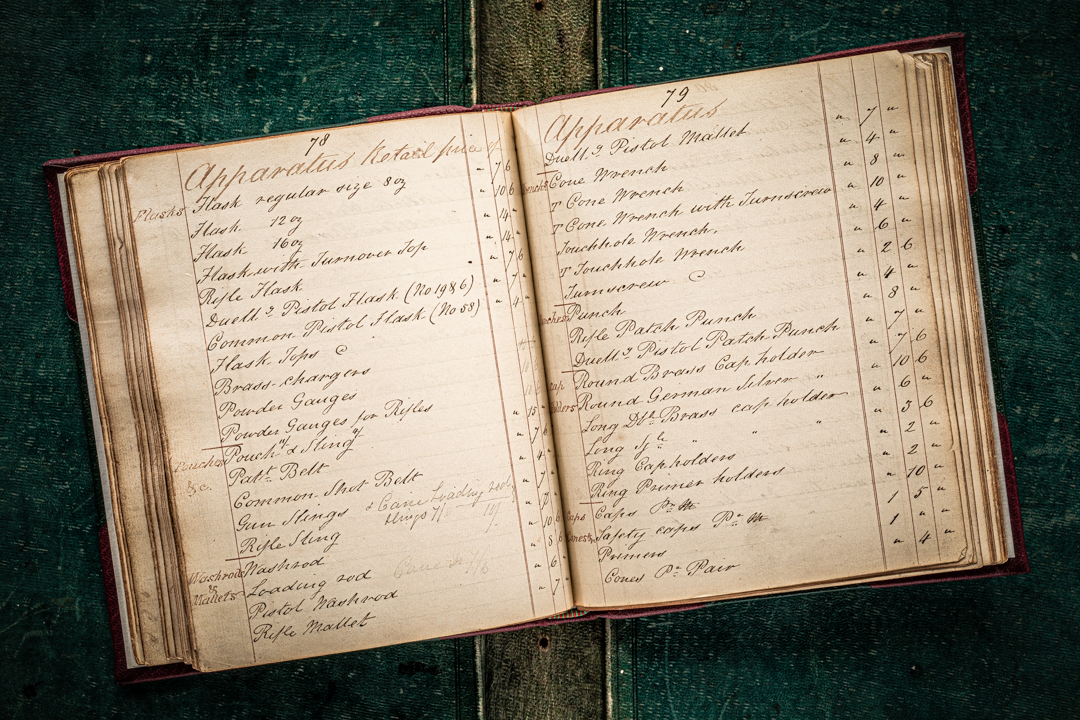 78
Apparatus Retail price of
Flasks Flask regular size 8 oz " 7 6
Flask 12 oz " 10 6
Flask 16 oz " 14 "
Flask with Turnover Top " 14 "
Rifle Flask " 7 6
Duellg Pistol Flask (No 1986) " 7 "
Common Pistol Flask (No 58) " 4 "
Flask Tops
Brass chargers
Powder Gauges
Powder Gauges for Rifles
Pouches Pouch & Sling " 15 "
&c. Patt. Belt " 7 6
Common Shot Belt " 4 "
Gun Slings & Cane Loading rods " 7 "
Rifle Sling
Washrods Washrod " 10 6
& Loading rod " 8 6
Mallets Pistol Washrod " 6 "
Rifle Mallet " 7 "
79
Apparatus
Duellg Pistol Mallet " 7 "
Cone Wrench " 4 "
T Cone Wrench " 8 "
T Cone Wrench with Turnscrew " 10 "
Touchhole Wrench " 4 "
T Touchhole Wrench " 6 "
Turnscrew " 2 6
Punch " 4 "
Rifle Patch Punch " 8 "
Duellg Pistol Patch Punch " 7 "
Cap Round Brass Cap holder " 7 6
holders Round German Silver " " 10 6
Long Dble Brass cap holder " 6 "
Long Sgle " " " " 3 6
Ring Cap holders " 2 "
Ring Primer holders " 2 "
Caps Caps Pr M " 10 "
Cones Safety caps Pr M 1 5 "
Primers 1 " "
Cones Pr Pair " 4 "